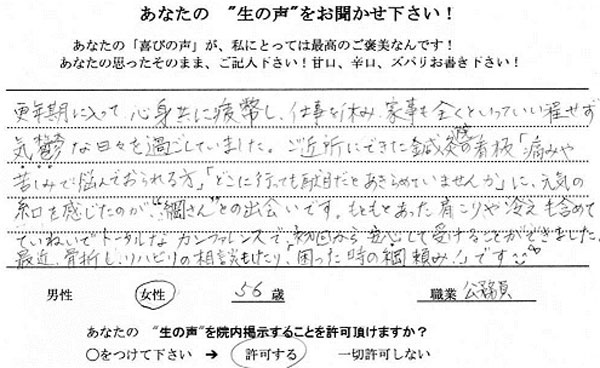 あなたの "生の声"をお聞かせ下さい！
あなたの「喜びの声」が、私にとっては最高のご褒美なんです！
あなたの思ったそのまま、ご記入下さい！甘口、辛口、ズバリお書き下さい！
更年期に入って、心身共に疲幣し、仕事を休み、家事も全くといっていい程せず
気鬱な日々を過ごしていました。ご近所にできた鍼灸院の看板「痛みや
苦しみで悩んでおられる方」「どこに行っても駄目だとあきらめていませんか」に、元気の
糸口を感じたのが、"綱さん"との出会いです。もともとあった肩こりや冷えも含めて
ていねいでトータルなカンファレンスで、初回から安心して受けることができました。
最近、骨折し、リハビリの相談もしたり、「困った時の綱頼み！」です
男性 女性 56歳 職業 公務員
あなたの "生の声"を院内掲示することを許可頂けますか？
○をつけて下さい → 許可する 一切許可しない